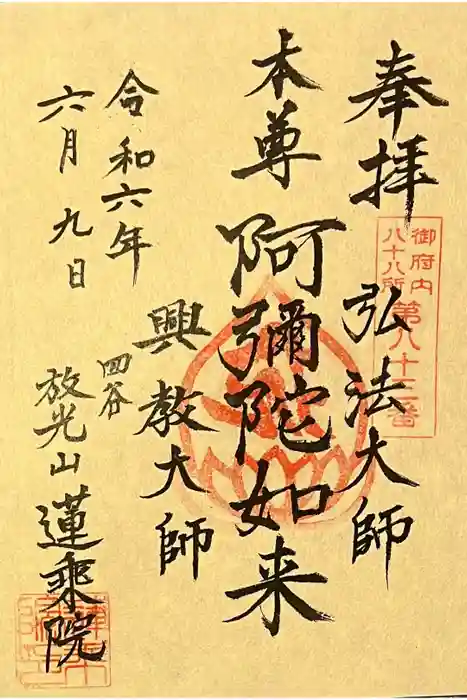 奉拝
御府内
八十八所
第八十三番
弘法大師
本尊
阿彌陀如来
興教大師
令和六年
六月九日
四谷
放光山
蓮乗院